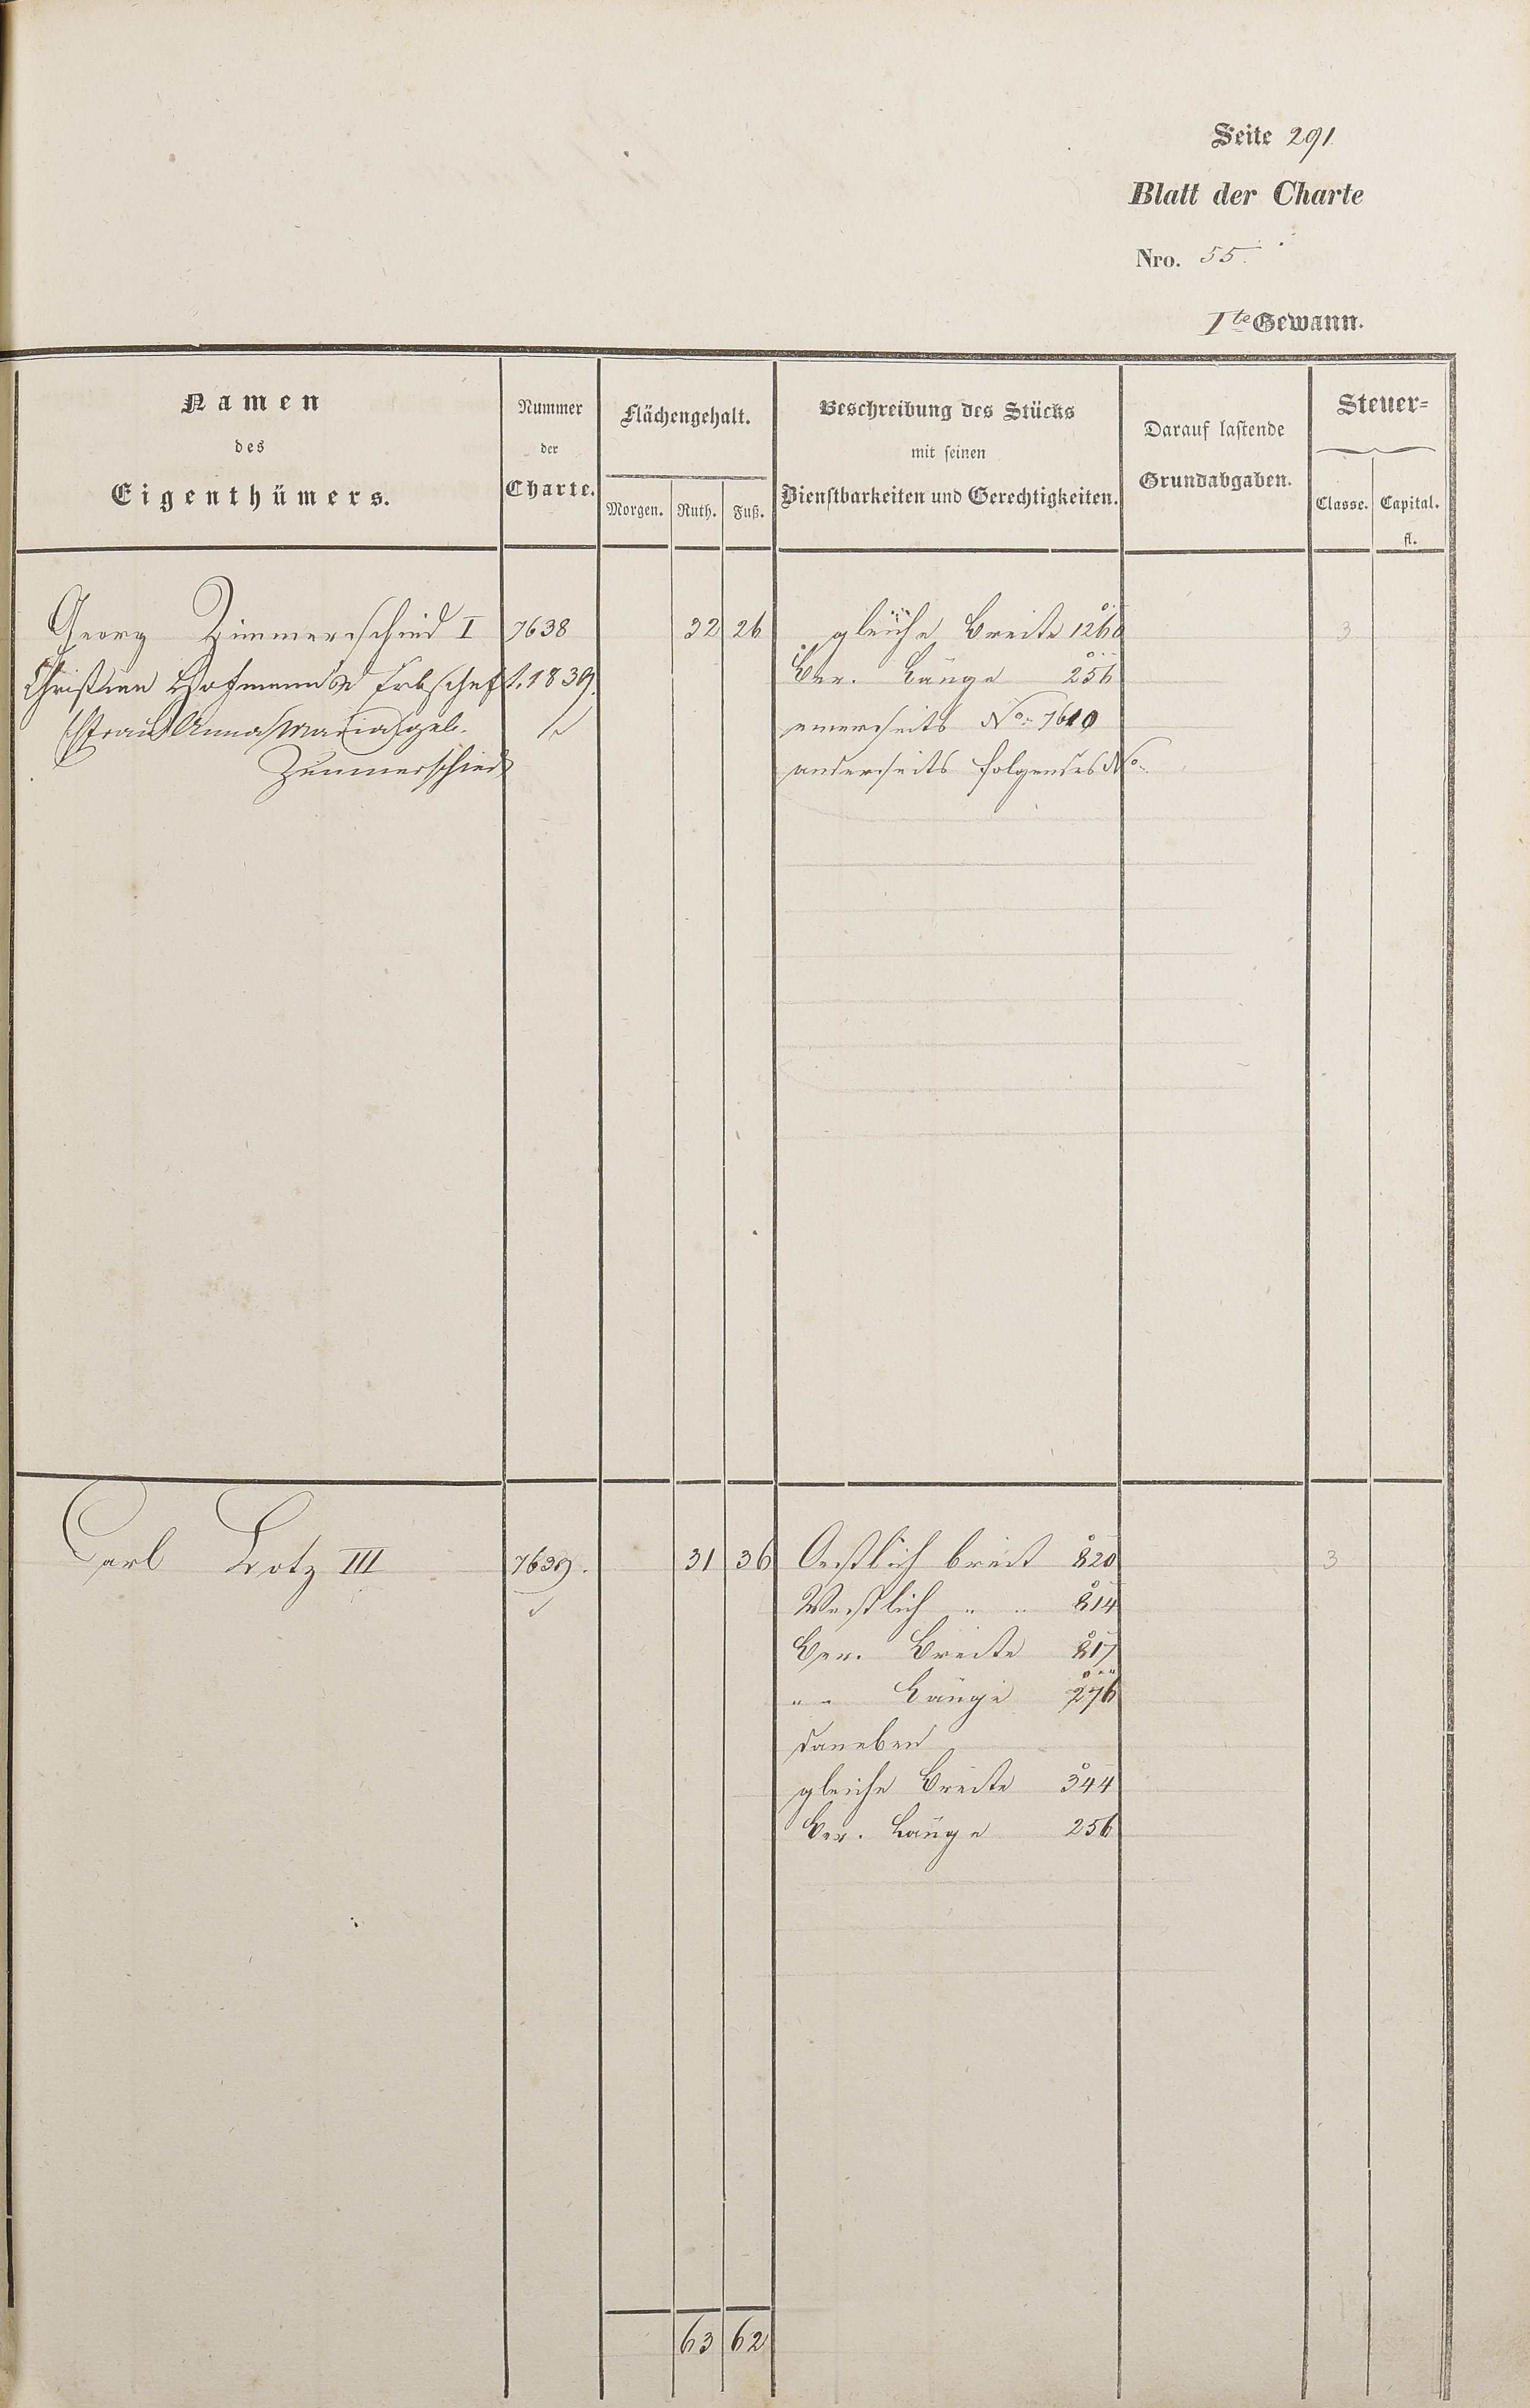 Seite 291
Blatt der Charte
Nro. 55.
Ite Gewann.
Namen des Eigenthümers.
Nummer der Charte.
Flächengehalt.
Morgen. Ruth. Fuß.
Beschreibung des Stücks mit seinen Dienstbarkeiten und Gerechtigkeiten.
Darauf lastende Grundabgaben.
Steuer=
Classe. Capital.
fl.
Georg Zimmerschied I 7638 32 26 gleiche Breite 1260 3
Christian Hofmann Erbschaft. 1839. Ber. Länge 256
(Frau Anna Maria) geb. einerseits No. 7610
Zimmerschied anderseits folgendes No.
Carl Lotz III 7639. 31 36 Oestlich breit 820 3
Westlich " " 814
Ber. Breite 817
" " Länge 276
daneben
gleiche Breite 344
Ber. Länge 256
63 62